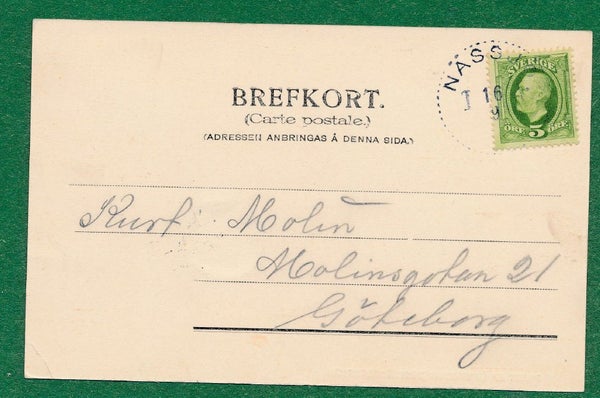 NÄSS
SVERIGE
16
9
ÖRE 5 ÖRE
BREFKORT.
(Carte postale.)
(ADRESSEN ANBRINGAS Å DENNA SIDA.)
Kurt Molin
Molinsgatan 21
Göteborg